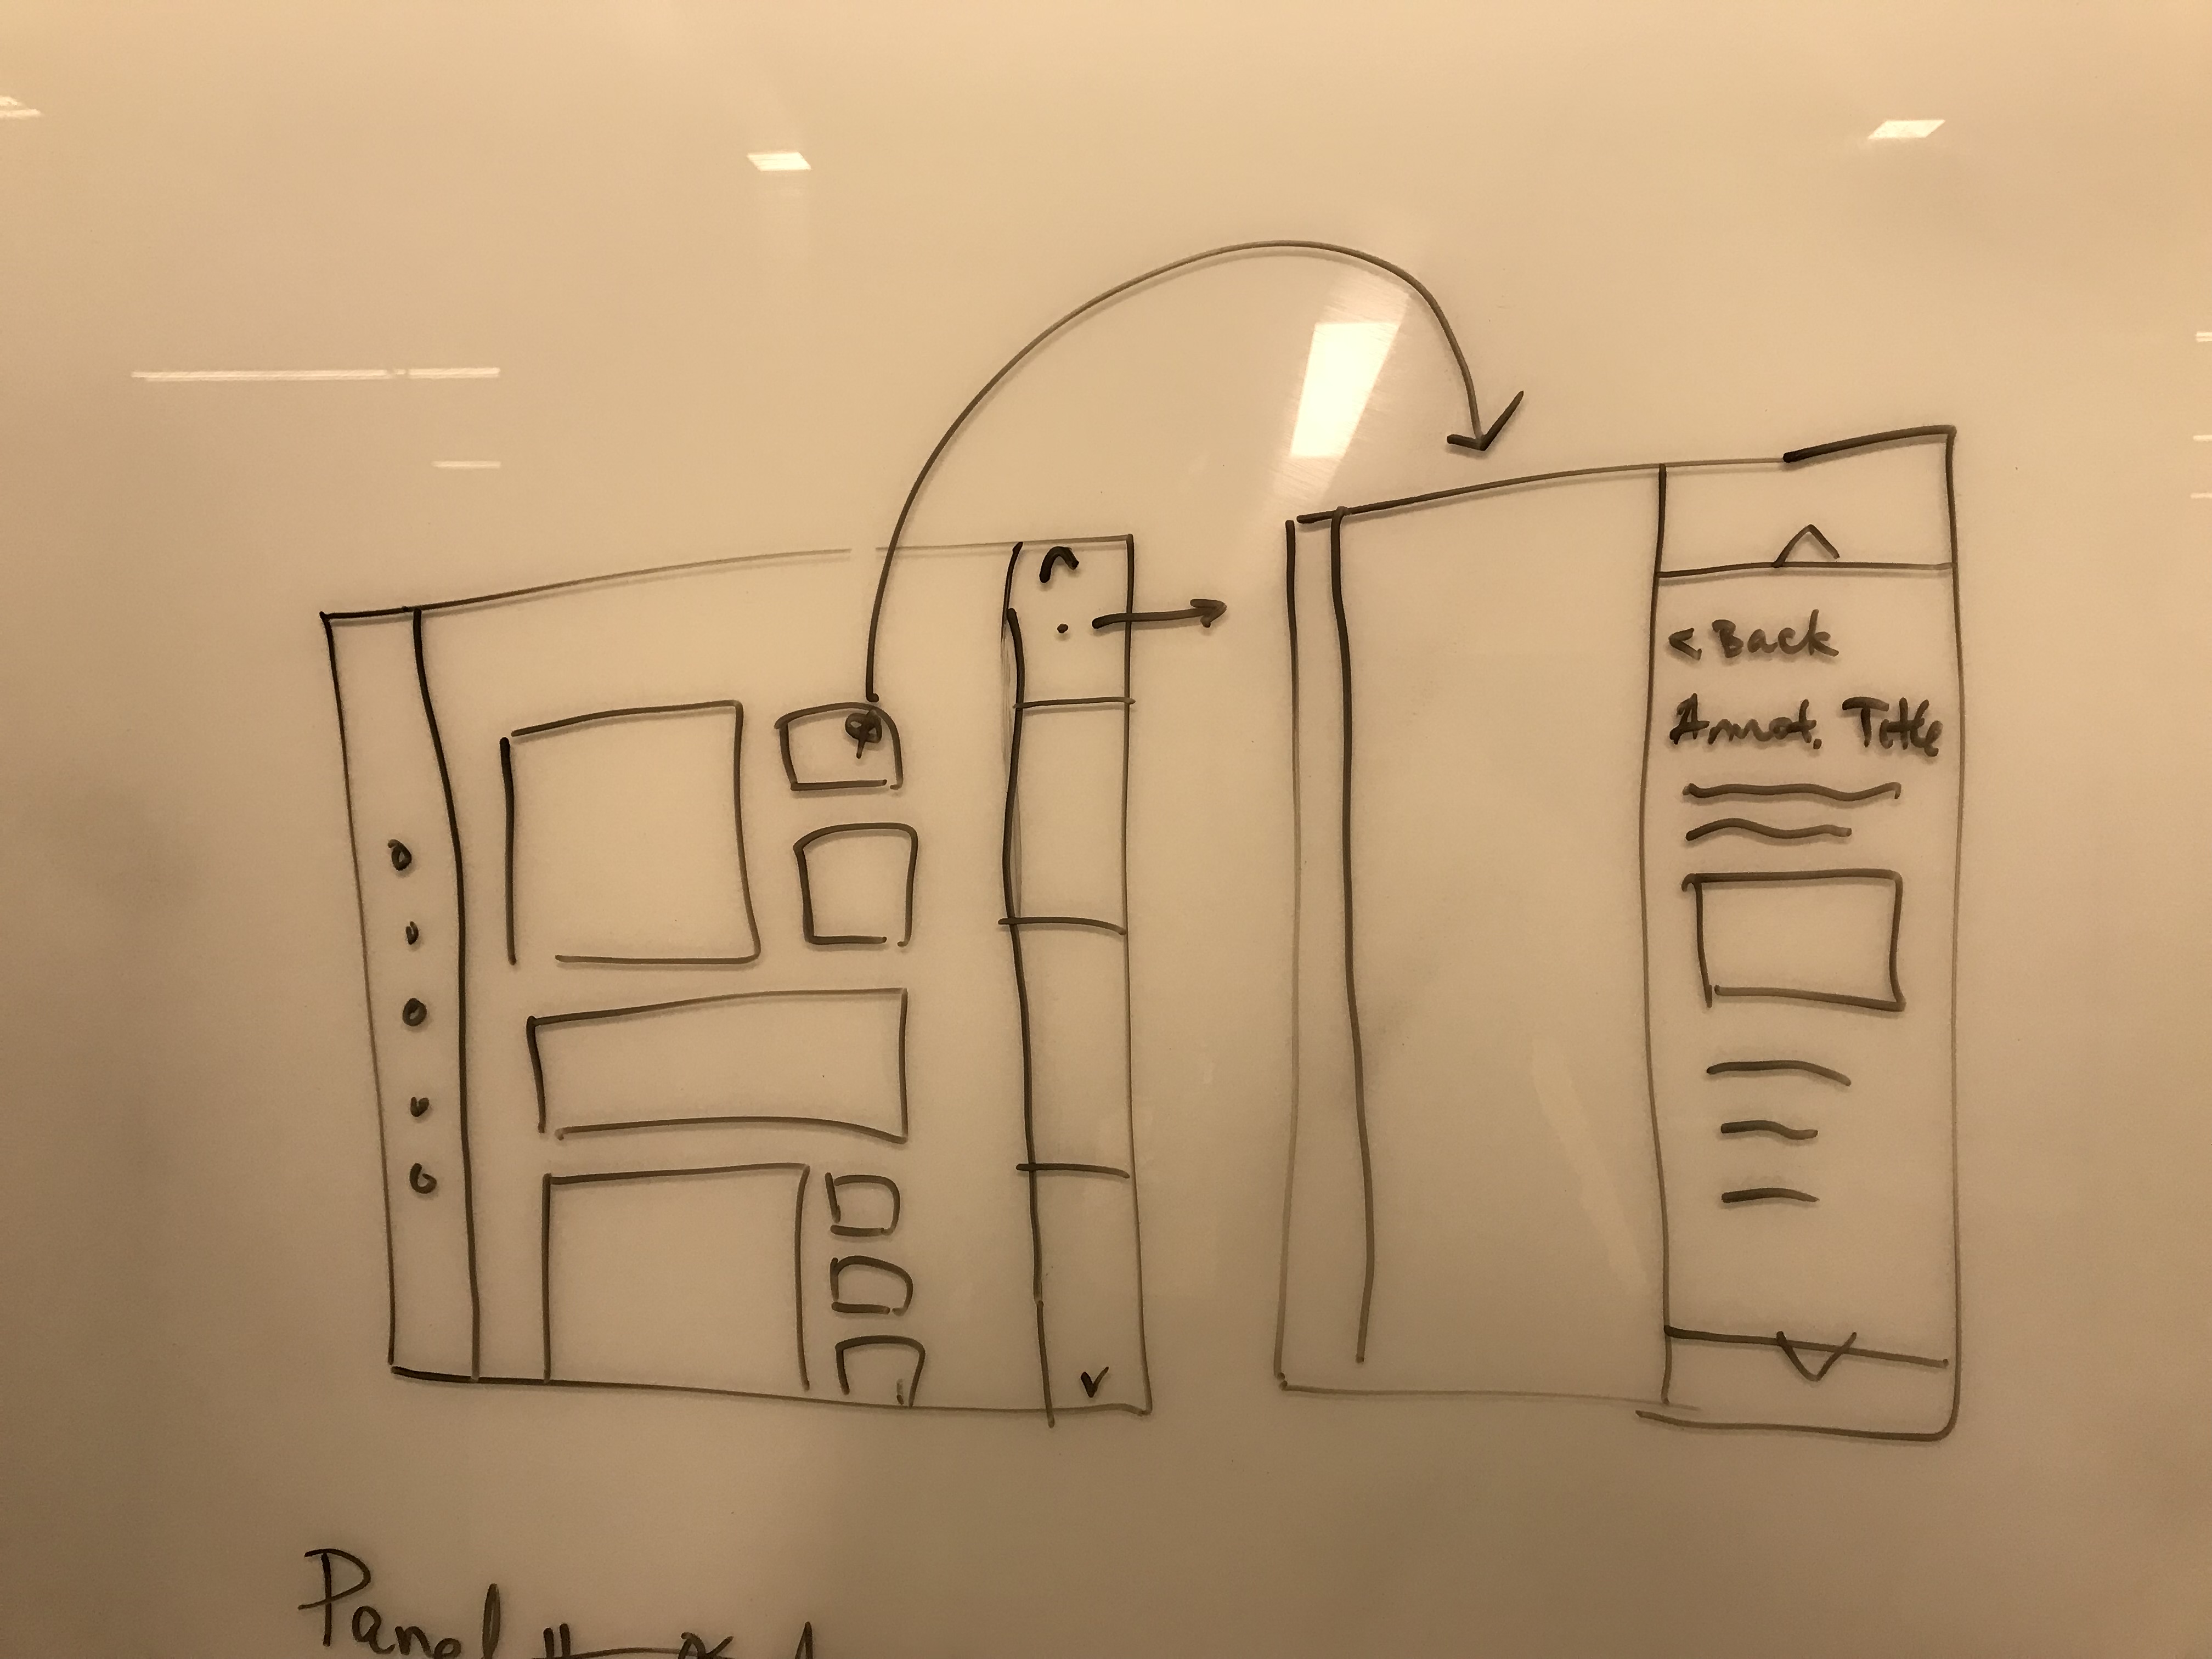 < Back
Annot. Title
Panel #